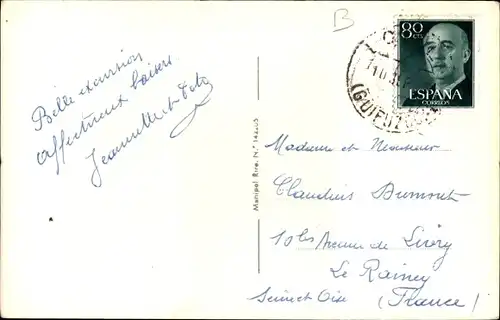 B
80 cts
ESPAÑA
CORREOS
(GUIPUZCOA)
Belle excursion
affectueux baisers
Jeannette et Toto
Manipel Rive. N.º
Madame et Monsieur
Claudius Dumont
10bis Avenue de Livry
Le Raincy
Seine et Oise (France)